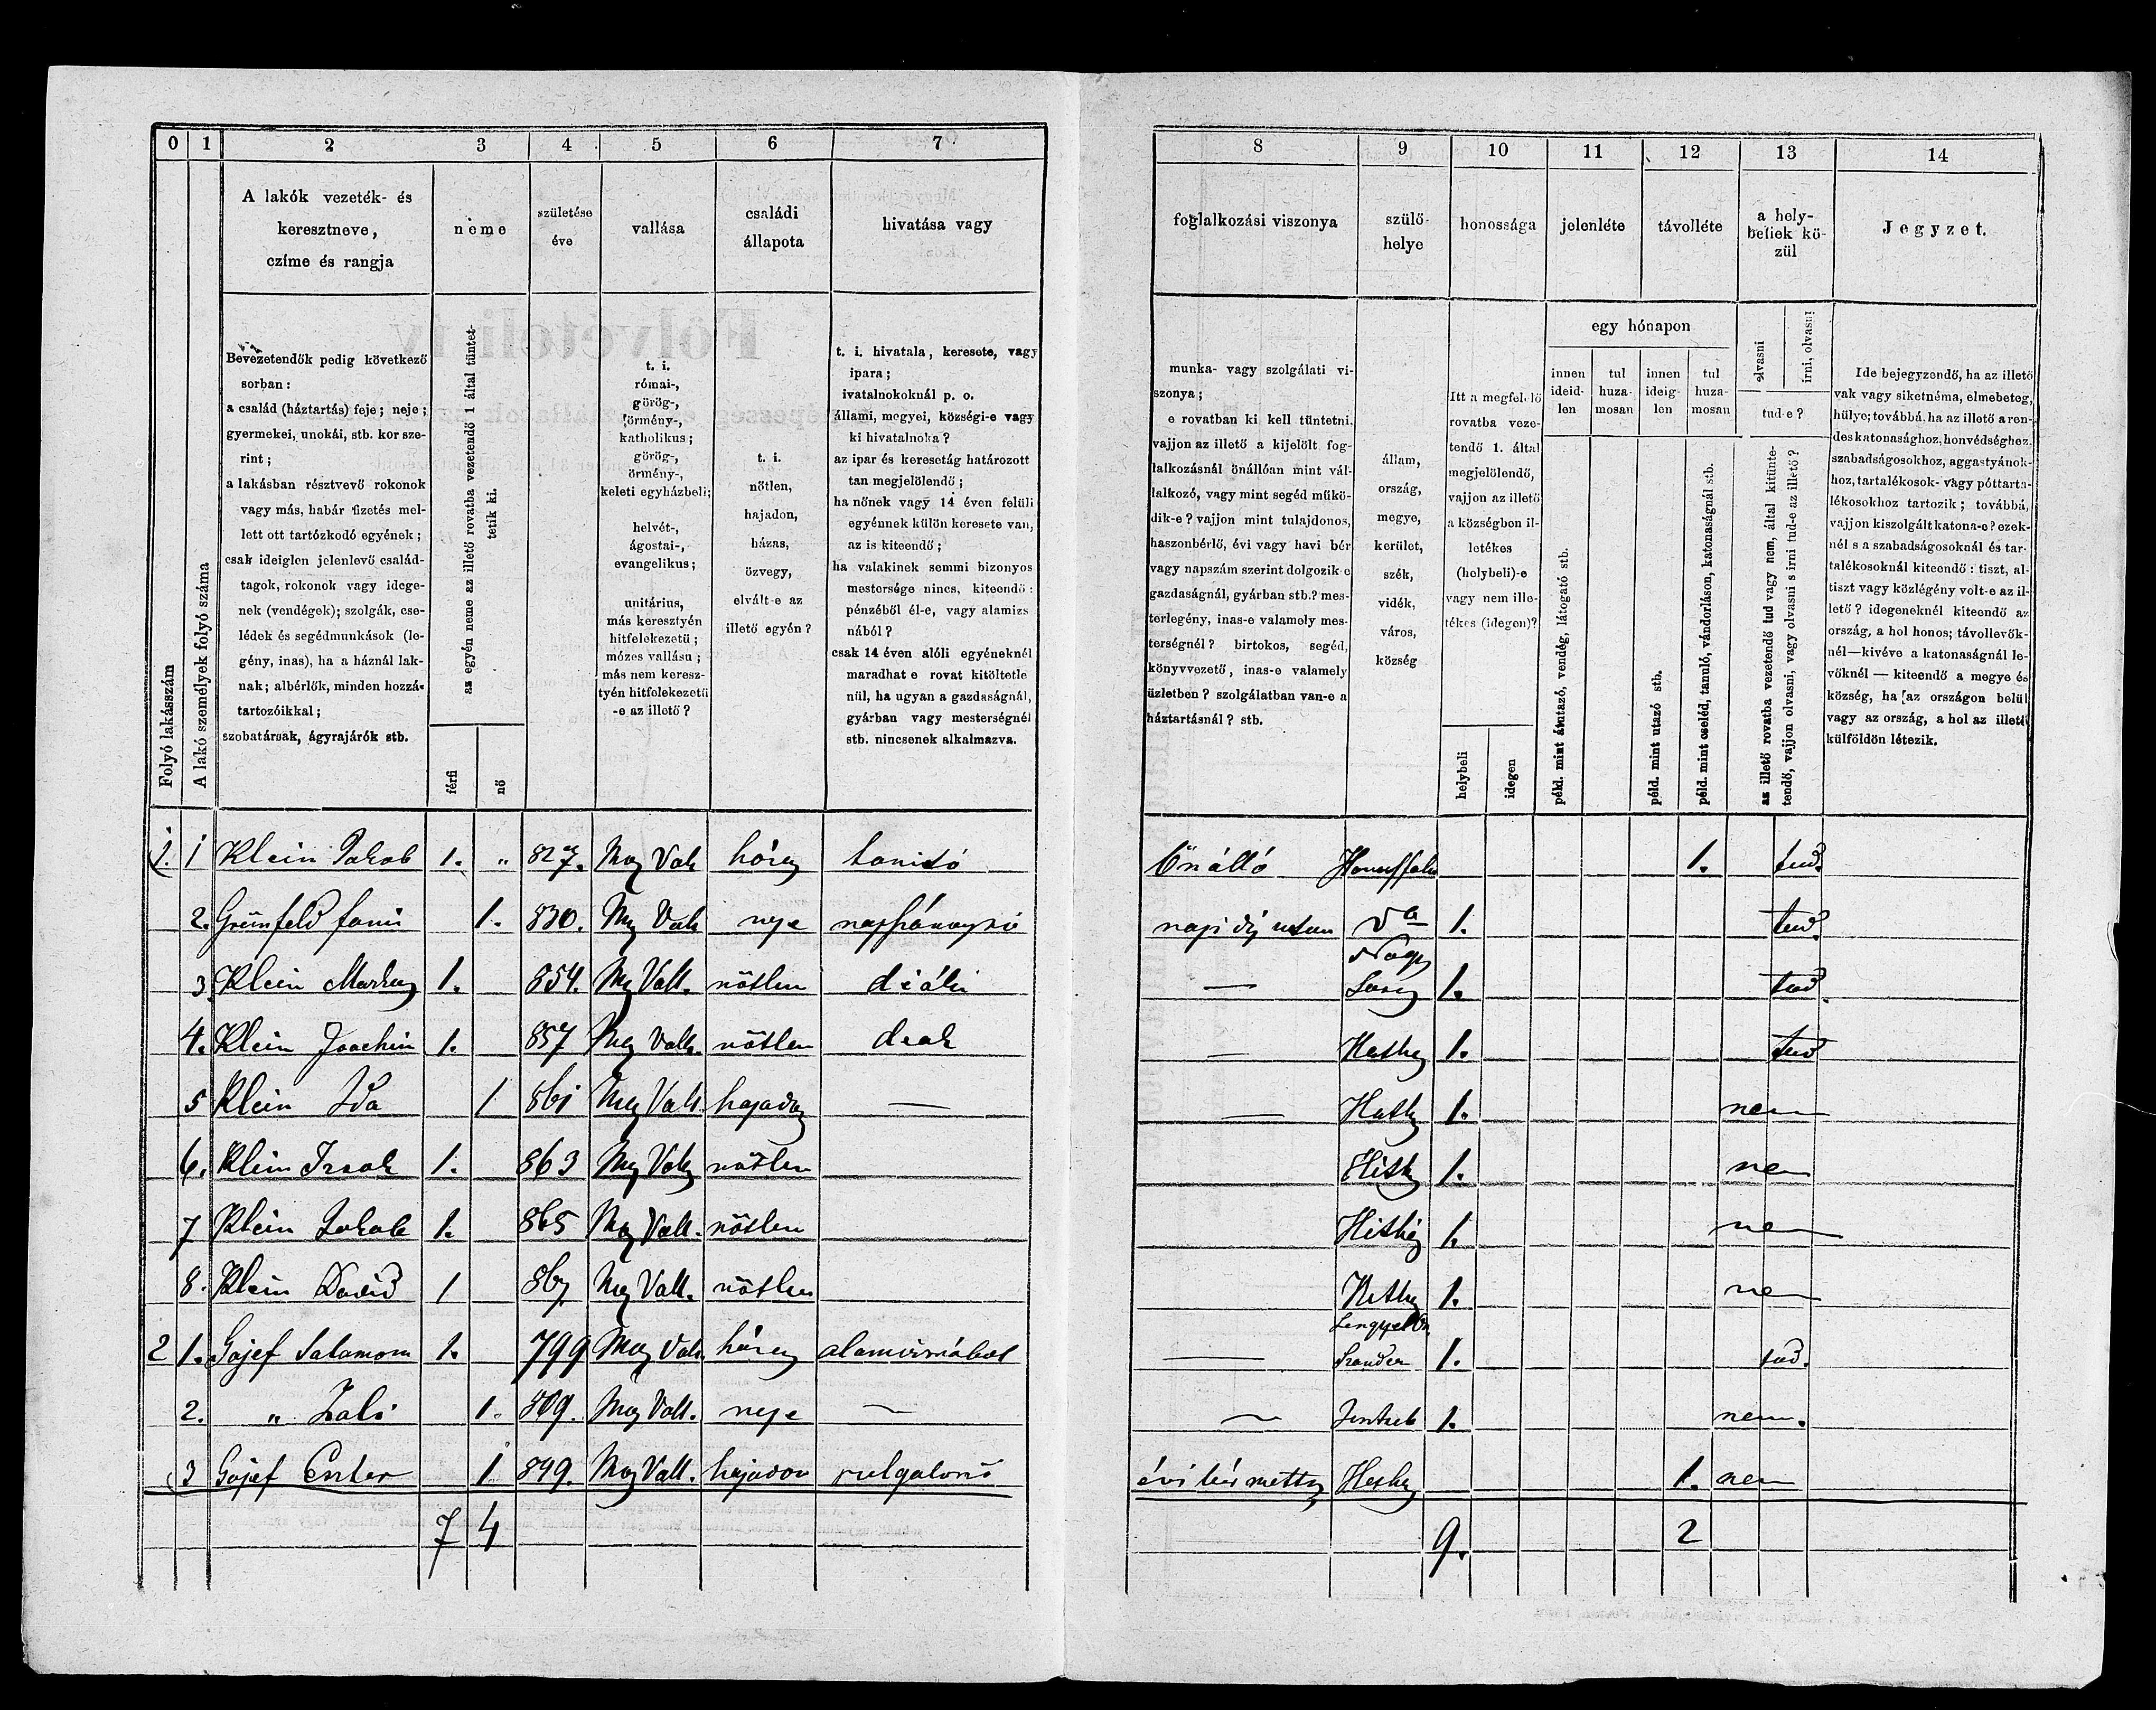 0 1 2 3 4 5 6 7
A lakók vezeték- és
keresztneve,
czíme és rangja
neme
születése
éve
vallása
családi
állapota
hivatása vagy
Folyó lakásszám
A lakó személyek folyó száma
Bevezetendők pedig következő
sorban:
a család (háztartás) feje; neje;
gyermekei, unokái, stb. kor sze-
rint;
a lakásban résztvevő rokonok
vagy más, habár fizetés mel-
lett ott tartózkodó egyének;
csak ideiglen jelenlevő család-
tagok, rokonok vagy idege-
nek (vendégek); szolgák, cse-
lédek és segédmunkások (le-
gény, inas), ha a háznál lak-
nak; albérlők, minden hozzá-
tartozóikkal;
szobatársak, ágyrajárók stb.
az egyén neme az illető rovatba vezetendő 1 által tüntet-
tetik ki.
férfi
nő
t. i.
római-,
görög-,
örmény-,
katholikus;
görög-,
örmény-,
keleti egyházbeli;
helvét-,
ágostai-,
evangelikus;
unitárius,
más keresztyén
hitfelekezetü;
mózes vallásu;
más nem keresz-
tyén hitfelekezetü
-e az illető?
t. i.
nőtlen,
hajadon,
házas,
özvegy,
elvált-e az
illető egyén?
t. i. hivatala, keresete, vagy
ipara;
ivatalnokoknál p. o.
állami, megyei, községi-e vagy
ki hivatalnoka?
az ipar és keresetág határozott
tan megjelölendő;
ha nőnek vagy 14 éven felüli
egyénnek külön keresete van,
az is kiteendő;
ha valakinek semmi bizonyos
mestersége nincs, kiteendő:
pénzéből él-e, vagy alamizs
nából?
csak 14 éven alóli egyéneknél
maradhat e rovat kitöltetle
nül, ha ugyan a gazdaságnál,
gyárban vagy mesterségnél
stb. nincsenek alkalmazva.
1. 1 Klein Jakob 1. „ 827. Moz Vall házas tanító
2. Grünfeld fani 1. 830. Moz Vall neje
3. Klein Markus 1. 854. Moz Vall. nőtlen diák
4. Klein Joachim 1. 857 Moz Vall. nőtlen deak
5 Klein Ida 1 861 Moz Vall. hajadon —
6. Klein Isaak 1. 863 Moz Vall nőtlen
7 Klein Jakab 1. 865 Moz Vall. nőtlen
8. Klein David 1 867 Moz Vall. nőtlen
2 1. Gajef Salamon 1. 799 Moz Vall. házas
2. „ Zali 1. 809. Moz Vall. neje —
3 Gajef Eszter 1 849. Moz Vall. hajadon szolgálonő
7 4
8 9 10 11 12 13 14
foglalkozási viszonya
szülő-
helye
honossága
jelenléte
távolléte
a hely-
beliek kö-
zül
Jegyzet.
munka- vagy szolgálati vi-
szonya;
e rovatban ki kell tüntetni,
vajjon az illető a kijelölt fog-
lalkozásnál önállóan mint vál-
lalkozó, vagy mint segéd műkö-
dik-e? vajjon mint tulajdonos,
haszonbérlő, évi vagy havi bér
vagy napszám szerint dolgozik-e
gazdaságnál, gyárban stb.? mes-
terlegény, inas-e valamely mes-
terségnél? birtokos, segéd,
könyvvezető, inas-e valamely
üzletben? szolgálatban van-e a
háztartásnál? stb.
állam,
ország,
megye,
kerület,
szék,
vidék,
város,
község
Itt a megfelelő
rovatba veze-
tendő 1. által
megjelölendő,
vajjon az illető
a községben il-
letékes
(helybeli)-e
vagy nem ille-
tékes (idegen)?
helybeli
idegen
egy hónapon
innen
ideid-
len
tul
huza-
mosan
innen
ideig-
len
tul
huza-
mosan
péld. mint átutazó, vendég, látogató stb.
péld. mint utazó stb.
péld. mint cseléd, tanuló, vándorláson, katonaságnál stb.
olvasni
írni, olvasni
tud-e?
az illető rovatba vezetendő tud vagy nem, által kitünte-
tendő, vajjon olvasni, vagy olvasni s irni tud-e az illető?
Ide bejegyzendő, ha az illető
vak vagy siketnéma, elmebeteg,
hülye; továbbá, ha az illető a ren-
des katonasághoz, honvédséghez,
szabadságosokhoz, aggastyánok-
hoz, tartalékosok- vagy póttarta-
lékosokhoz tartozik; továbbá,
vajjon kiszolgált katona-e? ezek-
nél s a szabadságosoknál és tar-
talékosoknál kiteendő: tiszt, al-
tiszt vagy közlegény volt-e az il-
lető? idegeneknél kiteendő az
ország, a hol honos; távollevők-
nél—kivéve a katonaságnál le-
vőknél — kiteendő a megye és
község, ha az országon belül
vagy az ország, a hol az illető
külföldön létezik.
Önálló 1. tud.
napi díj után 1. tud.
— Nagy
1. tud.
— Hethy 1. tud
— Hethy 1. nem
Hethy 1. nem
Hethy 1. nem
Hethy 1. nem
— Lengyel
1. tud.
— 1. nem.
évi bér mellett Hethy 1. nem
9. 2